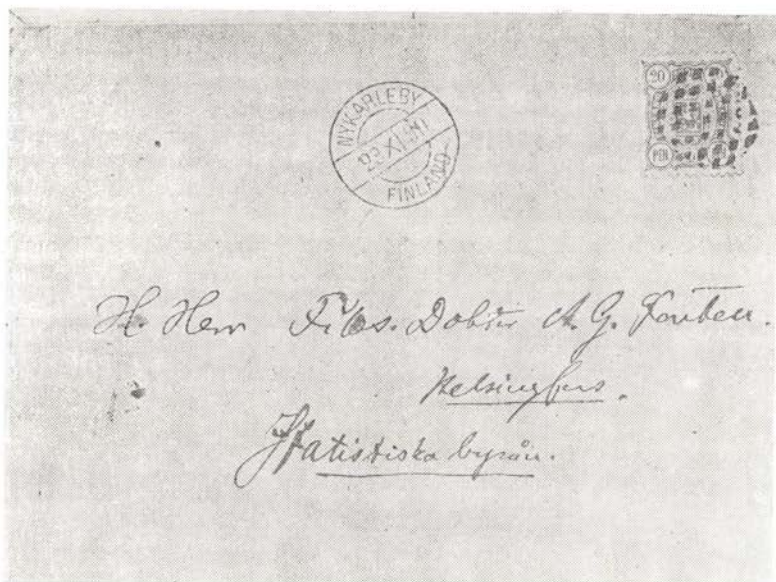 NYKARLEBY
23 XI
FINLAND
20
PEN
H. Herr Filos. Doktor A. G. Fontell.
Helsingfors.
Statistiska byrån.